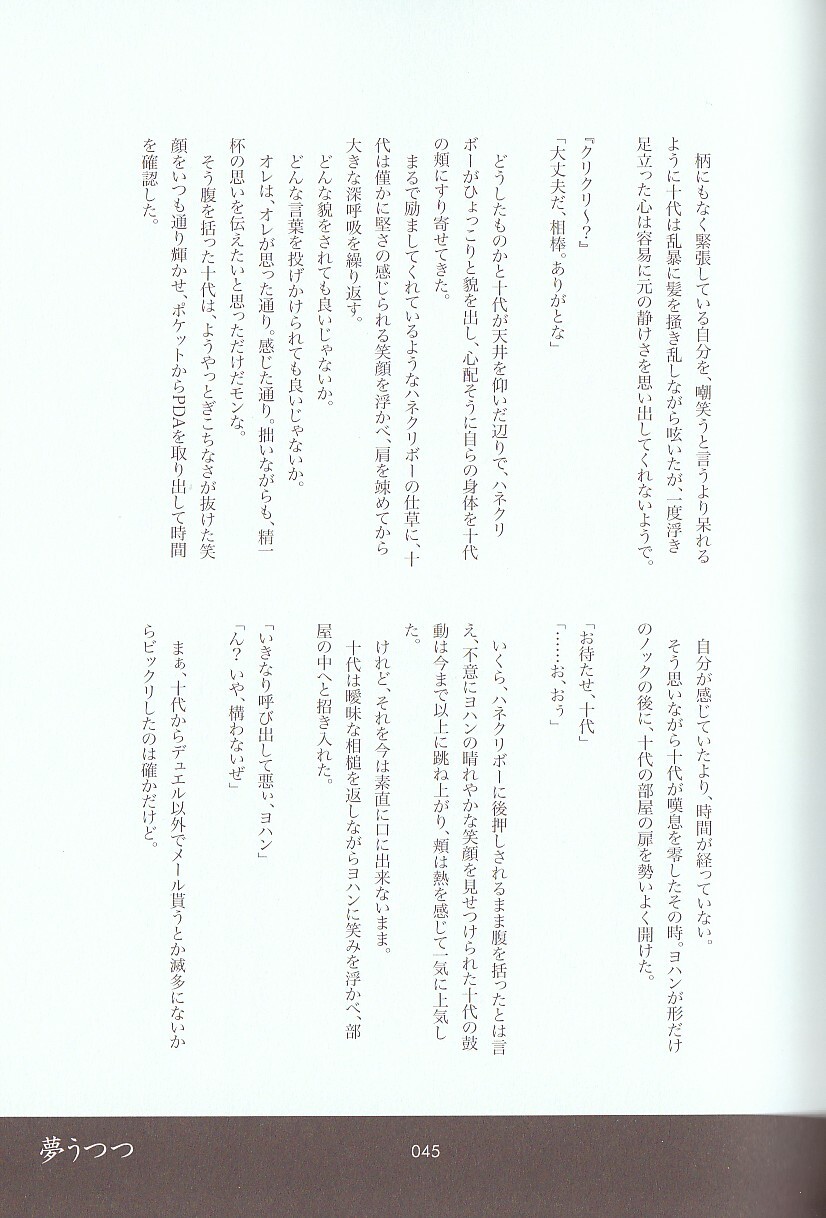 柄にもなく緊張している自分を、嘲笑うと言うより呆れる
ように十代は乱暴に髪を掻き乱しながら呟いたが、一度浮き
足立った心は容易に元の静けさを思い出してくれないようで。
『クリクリ～?』
「大丈夫だ、相棒。ありがとな」
どうしたものかと十代が天井を仰いだ辺りで、ハネクリ
ボーがひょっこりと貌を出し、心配そうに自らの身体を十代
の頬にすり寄せてきた。
まるで励ましてくれているようなハネクリボーの仕草に、十
代は僅かに堅さの感じられる笑顔を浮かべ、肩を竦めてから
大きな深呼吸を繰り返す。
どんな貌をされても良いじゃないか。
どんな言葉を投げかけられても良いじゃないか。
オレは、オレが思った通り。感じた通り。拙いながらも、精一
杯の思いを伝えたいと思っただけだモンな。
そう腹を括った十代は、ようやっとぎこちなさが抜けた笑
顔をいつも通り輝かせ、ポケットからPDAを取り出して時間
を確認した。
自分が感じていたより、時間が経っていない。
そう思いながら十代が嘆息を零したその時。ヨハンが形だけ
のノックの後に、十代の部屋の扉を勢いよく開けた。
「お待たせ、十代」
「……お、おぅ」
いくら、ハネクリボーに後押しされるまま腹を括ったとは言
え、不意にヨハンの晴れやかな笑顔を見せつけられた十代の鼓
動は今まで以上に跳ね上がり、頬は熱を感じて一気に上気し
た。
けれど、それを今は素直に口に出来ないまま。
十代は曖昧な相槌を返しながらヨハンに笑みを浮かべ、部
屋の中へと招き入れた。
「いきなり呼び出して悪ぃ、ヨハン」
「ん? いや、構わないぜ」
まぁ、十代からデュエル以外でメール貰うとか滅多にないか
らビックリしたのは確かだけど。
夢うつつ
045